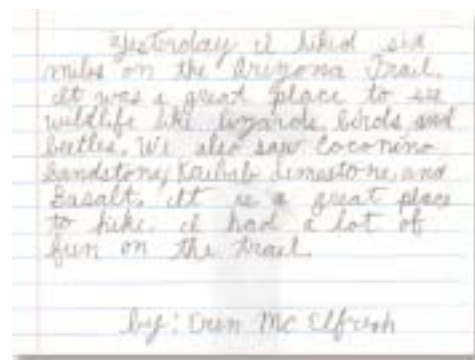 Yesterday I hiked six
miles on the Arizona Trail.
It was a great place to see
wildlife like lizards, birds, and
beetles. We also saw Coconino
Sandstone, Kaibab Limestone, and
Basalt. It is a great place
to hike. I had a lot of
fun on the trail.
by: Mc Elfresh